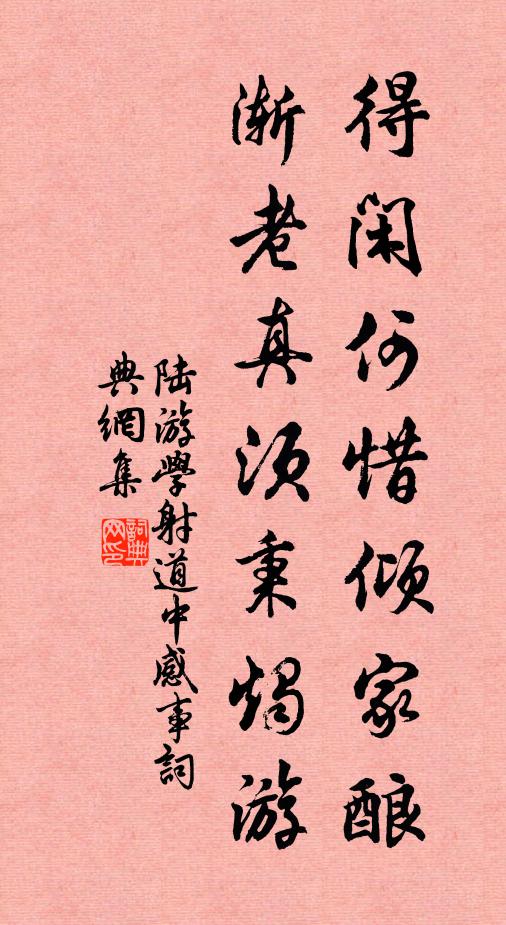 得闲何惜倾家酿
渐老真须秉烛游
陆游學射道中感事詞
典網集
詞典网印